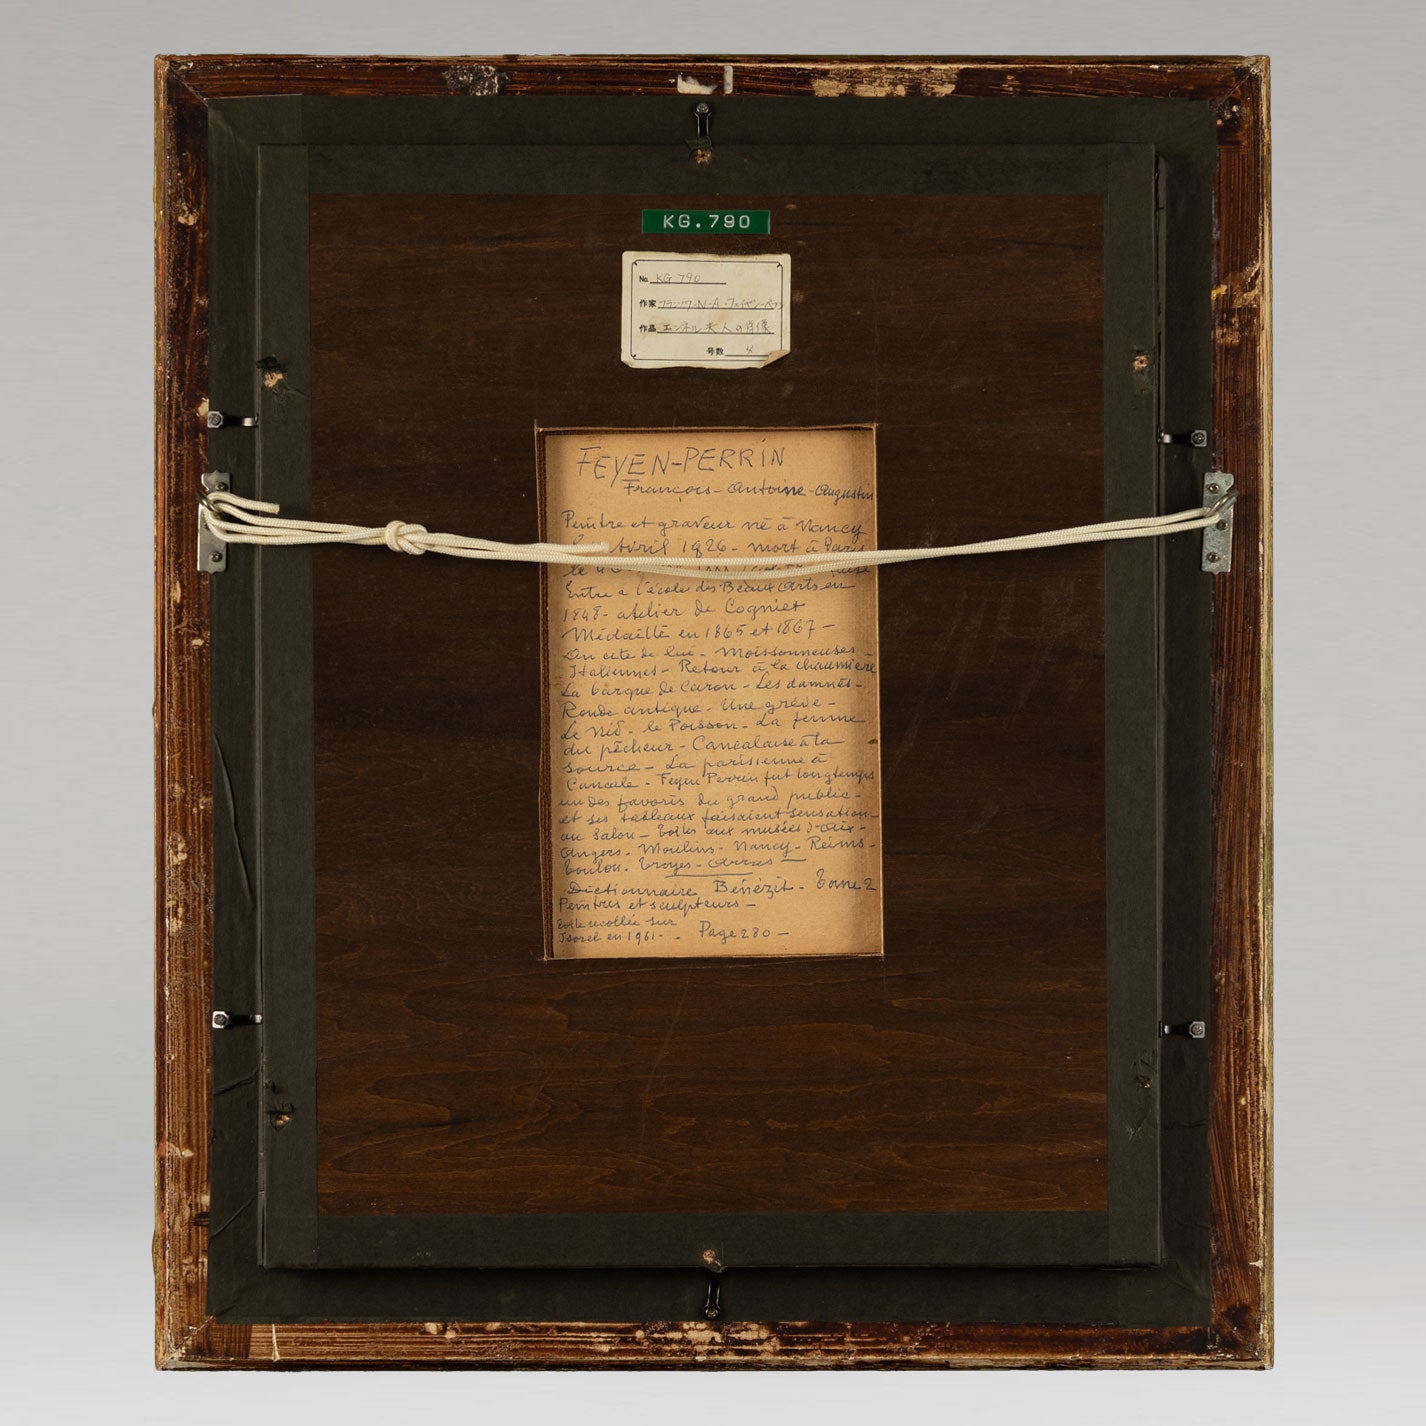 KG.790
No. KG 790
作家 フランソワ・N・A・フェイヤン・ペラン
作品 エンネル夫人の肖像
号数 4
FEYEN-PERRIN
François-Antoine-Augustin
Peintre et graveur né à Nancy
Avril 1826 - mort à Paris
le
Entre a l'école des Beaux Arts en
1848- atelier de Cogniet
Médaillé en 1865 et 1867-
On cite de lui - Moissonneuses -
Italiennes - Retour à la chaumière
La barque de Caron - Les damnés -
Ronde antique - Une grève -
Le Nid - le Poisson - La femme
du pêcheur - Cancalaise à la
source - La parisienne à
Cancale - Feyen Perrin fut longtemps
un des favoris du grand public -
et ses tableaux faisaient sensation -
au Salon - Toiles aux musées d'Aix -
Angers - Moulins - Nancy - Reims -
Toulon. Troyes - Arras -
Dictionnaire Bénézit - Tome 2
Peintres et sculpteurs -
Toile recollée sur
Isorel en 1961 - - Page 280 -